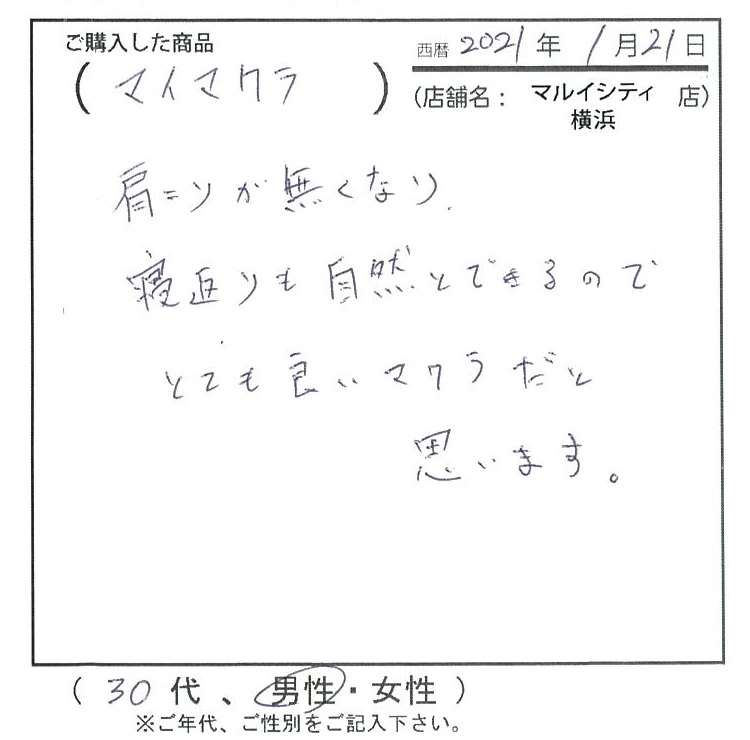 ご購入した商品
(マイマクラ)
西暦 2021年 1月21日
(店舗名： マルイシティ横浜 店)
肩こりが無くなり、
寝返りも自然とできるので
とても良いマクラだと
思います。
(30代、男性・女性)
※ご年代、ご性別をご記入下さい。